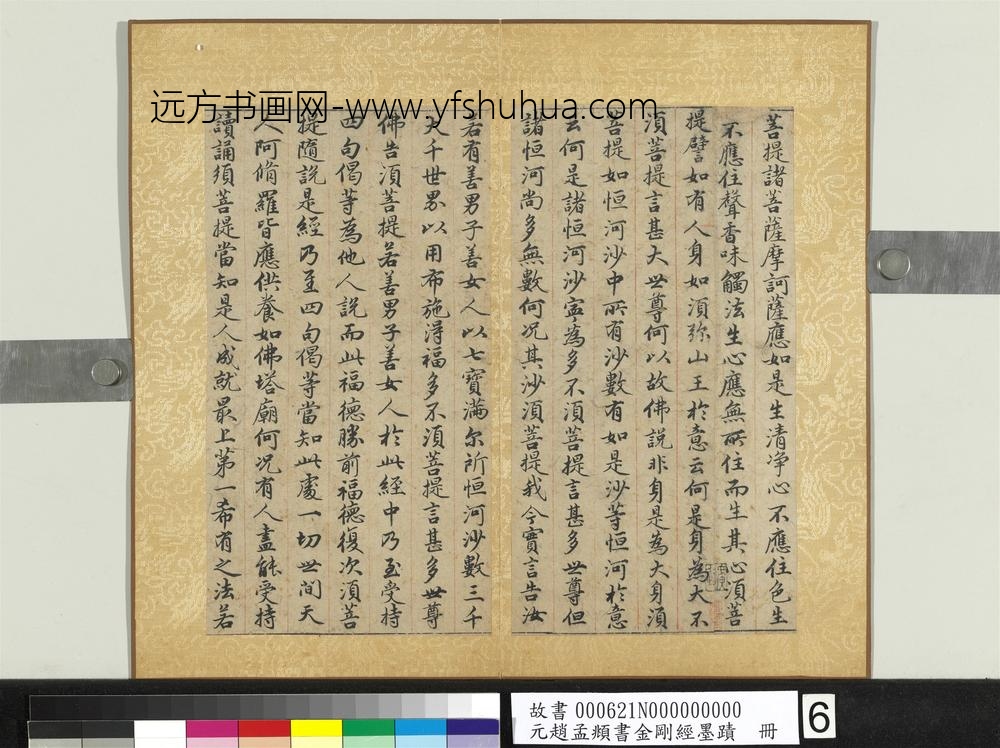 远方书画网-www.yfshuhua.com
菩提諸菩薩摩訶薩應如是生清淨心不應住色生
不應住聲香味觸法生心應無所住而生其心須菩
提譬如有人身如須弥山王於意云何是身為大不
須菩提言甚大世尊何以故佛説非身是為大身須
菩提如恒河沙中所有沙數有如是沙等恒河於意
云何是諸恒河沙寧為多不須菩提言甚多世尊但
諸恒河尚多無數何况其沙須菩提我今實言告汝
若有善男子善女人以七寶滿尔所恒河沙數三千
大千世界以用布施淂福多不須菩提言甚多世尊
佛告須菩提若善男子善女人於此經中乃至受持
四句偈等為他人説而此福德勝前福德復次須菩
提隨説是經乃至四句偈等當知此處一切世間天
人阿脩羅皆應供養如佛塔廟何况有人盡能受持
讀誦須菩提當知是人成就最上第一希有之法若
故書 000621N000000000
元趙孟頫書金剛經墨蹟 冊
6